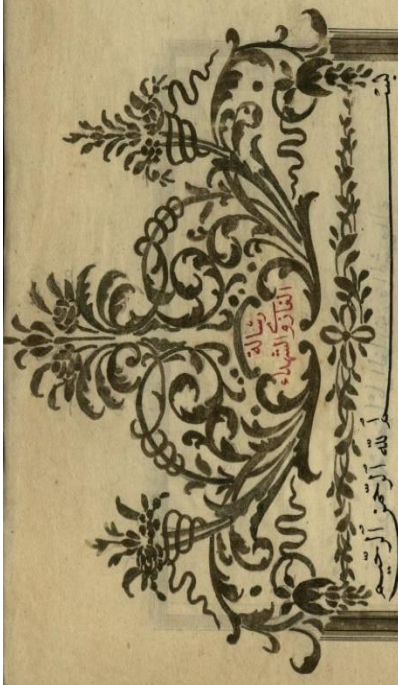 رسالة
الغازي والشهداء
بسم الله الرحمن الرحيم